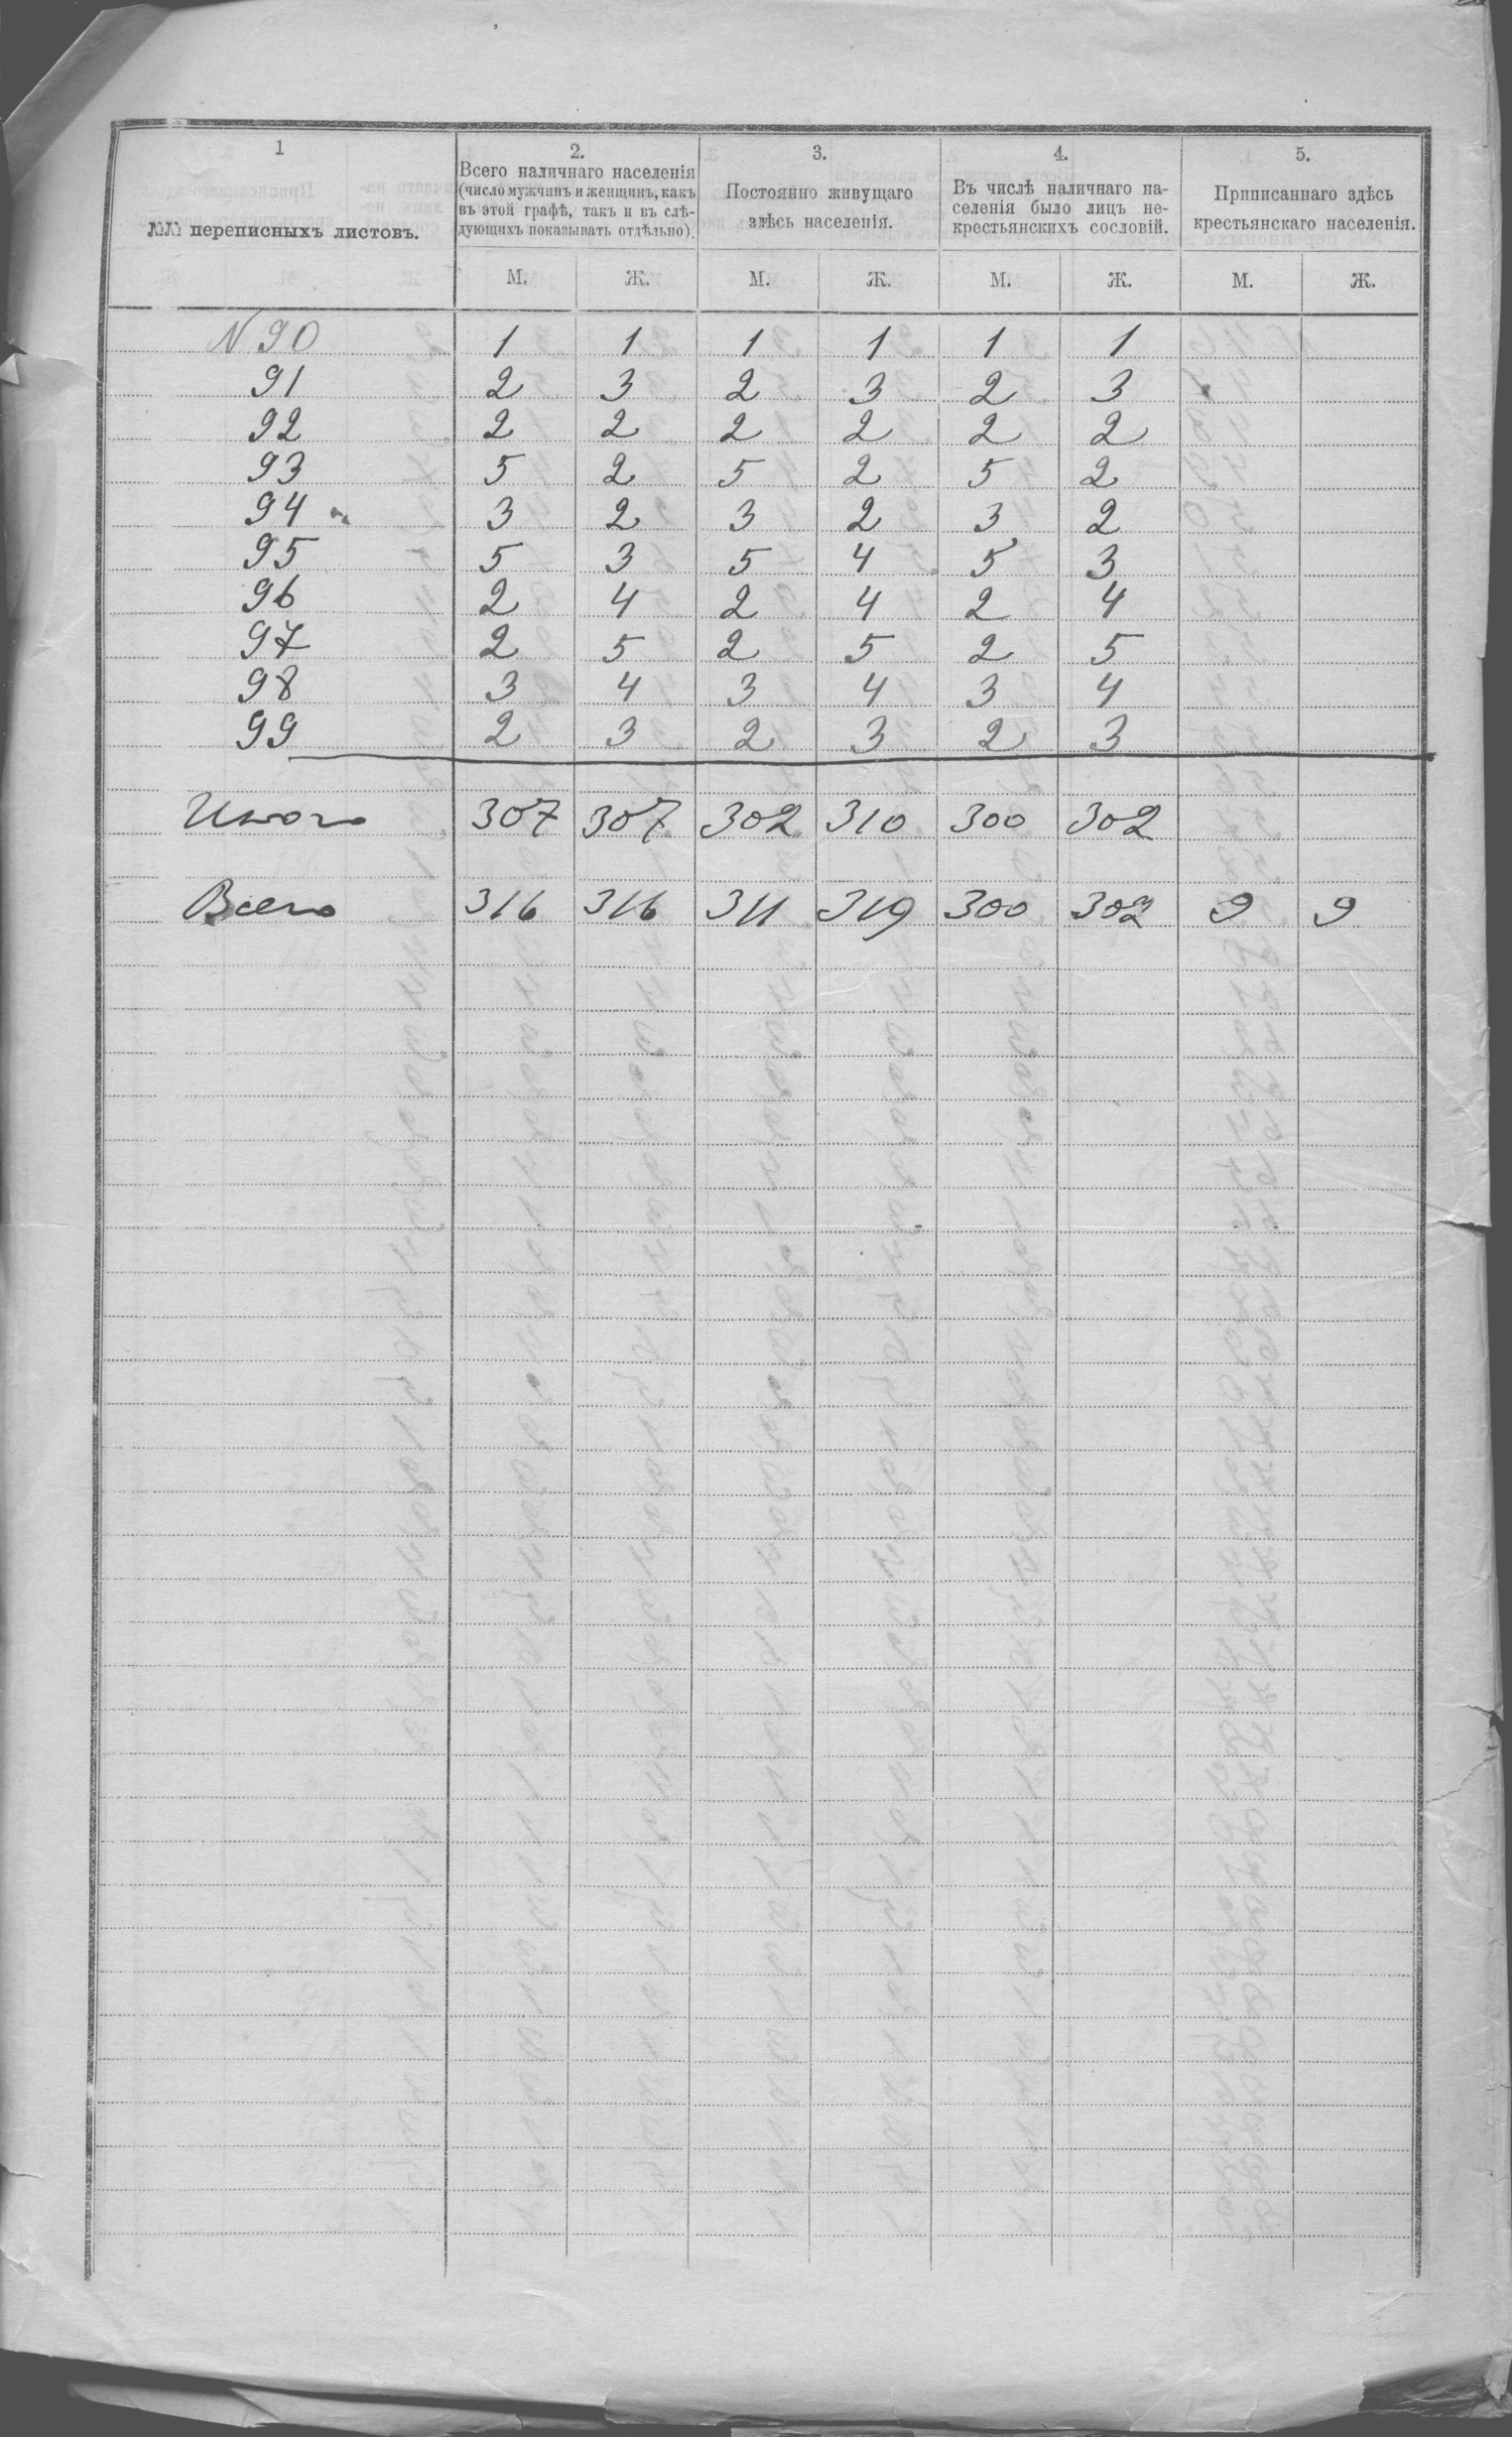 1 2. 3. 4. 5.
№№ переписныхъ листовъ.
Всего наличнаго населенія
(число мужчинъ и женщинъ, какъ
въ этой графѣ, такъ и въ слѣ-
дующихъ показывать отдѣльно).
Постоянно живущаго
здѣсь населенія.
Въ числѣ наличнаго на-
селенія было лицъ не-
крестьянскихъ сословій.
Приписаннаго здѣсь
крестьянскаго населенія.
М. Ж. М. Ж. М. Ж. М. Ж.
N 90 1 1 1 1 1 1
91 2 3 2 3 2 3
92 2 2 2 2 2 2
93 5 2 5 2 5 2
94 3 2 3 2 3 2
95 5 3 5 4 5 3
96 2 4 2 4 2 4
97 2 5 2 5 2 5
98 3 4 3 4 3 4
99 2 3 2 3 2 3
Итого 307 307 302 310 300 302
Всего 316 316 311 319 300 302 9 9